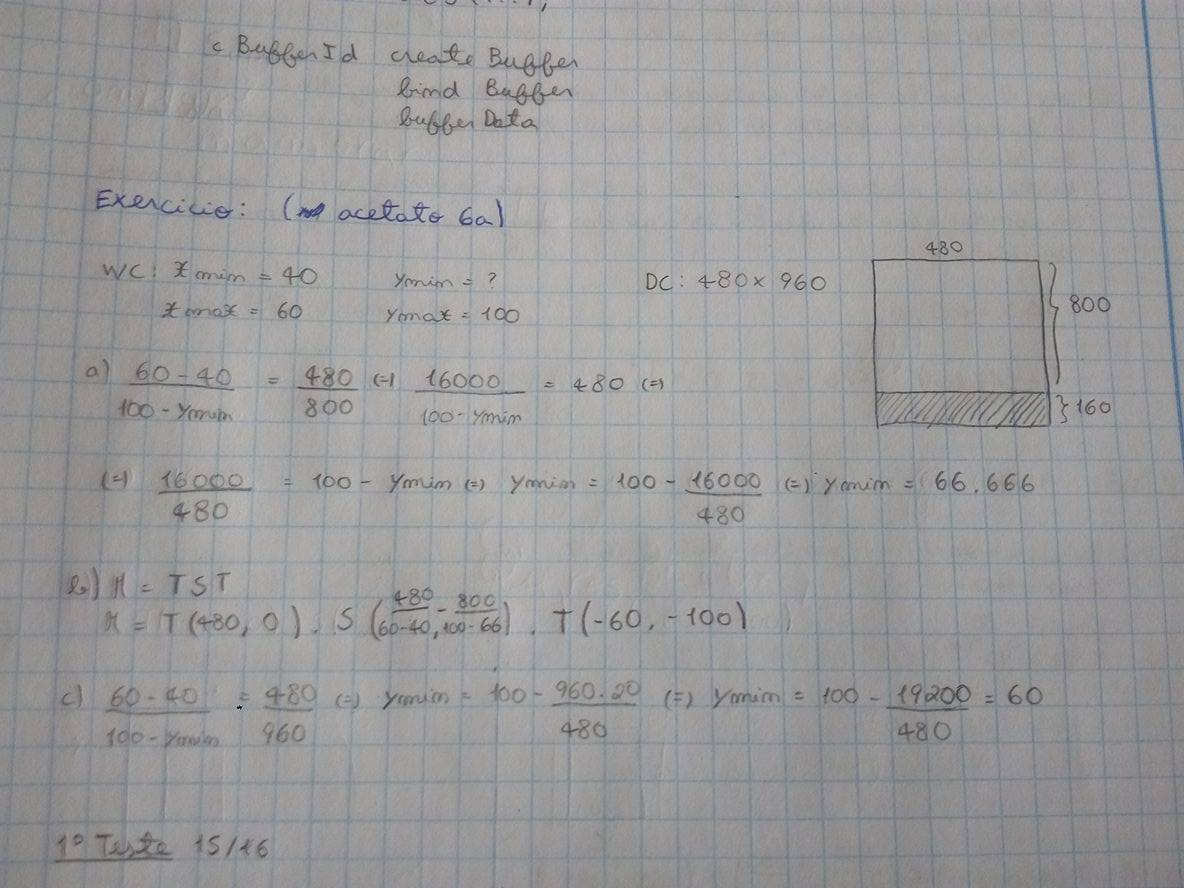 c BufferId create Buffer
bind Buffer
bufferData
Exercicio: ( acetato 6a)
WC: xmin = 40 ymin = ? DC: 480 x 960
xmax = 60 ymax = 100
480
800
160
a) 60-40/100-ymin = 480/800 (=) 16000/100-ymin = 480 (=)
(=) 16000/480 = 100 - ymin (=) ymin = 100 - 16000/480 (=) ymin = 66.666
b) M = TST
M = T(480, 0). S (480/60-40, -800/100-66). T(-60, -100)
c) 60-40/100-ymin = 480/960 (=) ymin = 100 - 960.20/480 (=) ymin = 100 - 19200/480 = 60
1º Teste 15/16